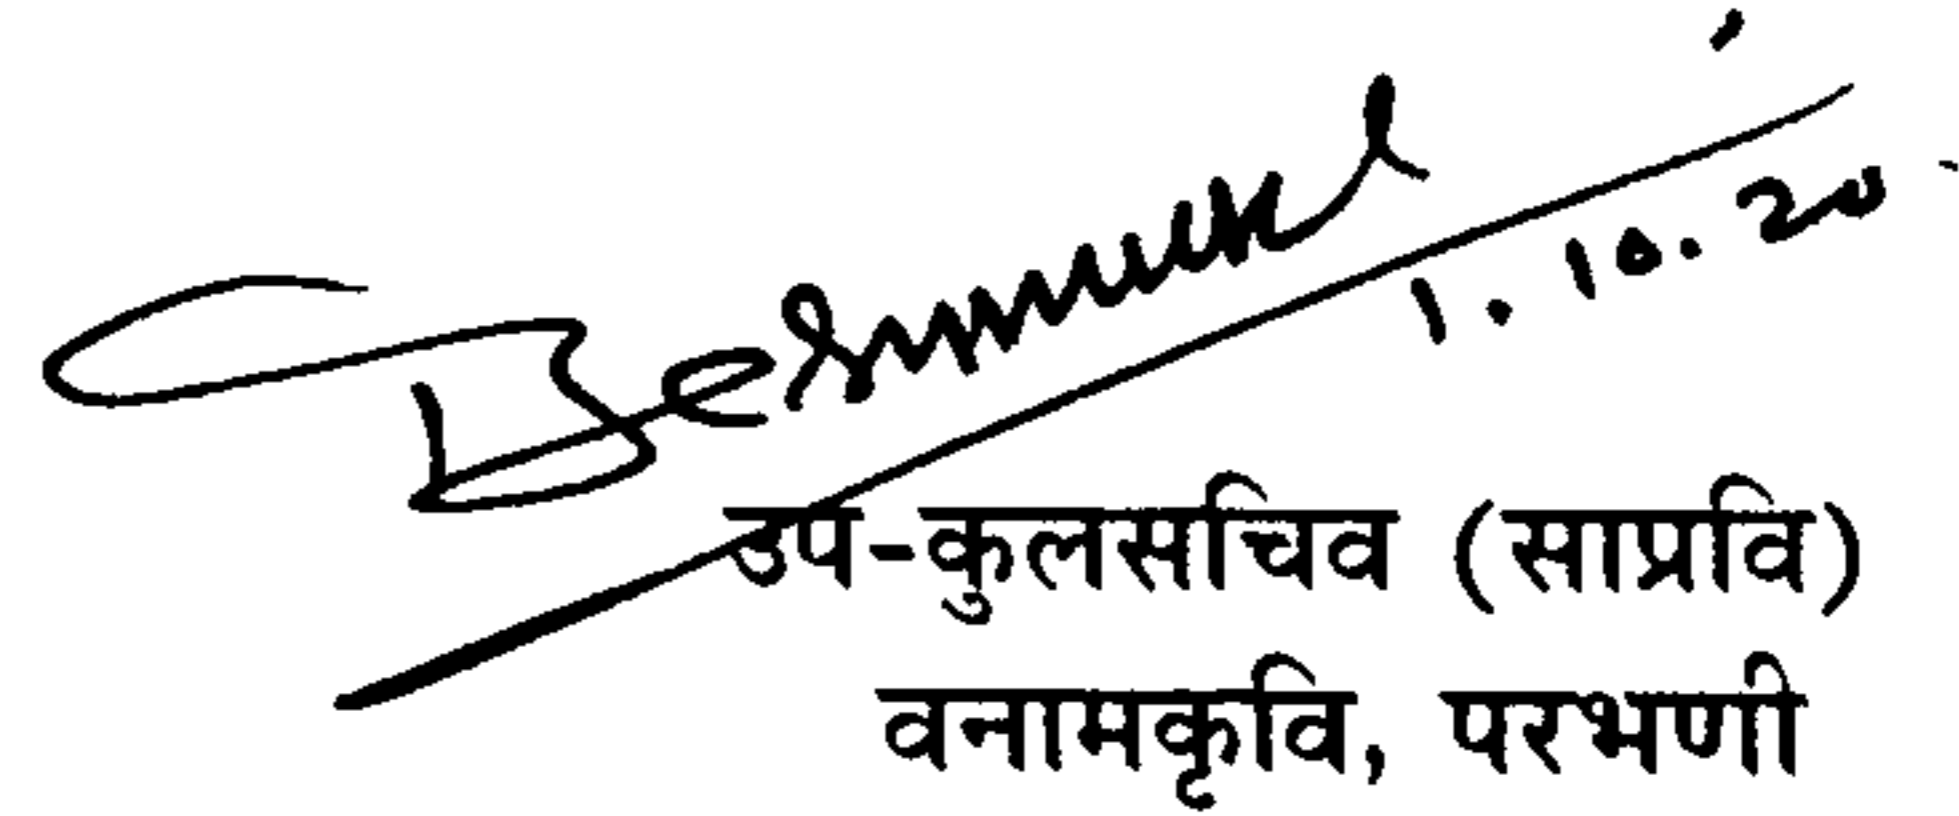 1.10.20
उप-कुलसचिव (साप्रवि)
वनामकृवि, परभणी